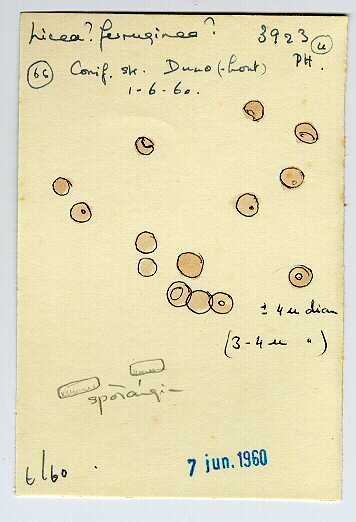 Licea? ferruginea? 3923 (u)
(66) Conif. str. Duno (-hout) PH.
1-6-60.
± 4 u diam
(3-4 u ")
sporangi-
t/60
7 jun. 1960